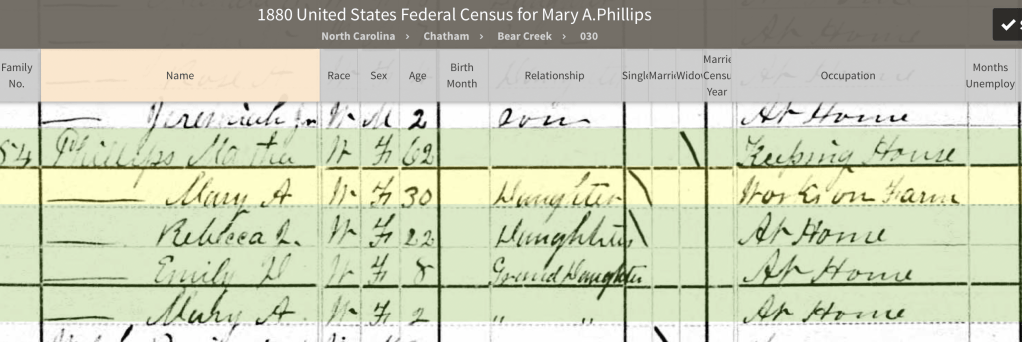 1880 United States Federal Census for Mary A.Phillips
North Carolina › Chatham › Bear Creek › 030
Family No. Name Race Sex Age Birth Month Relationship Single Marrie Widow Marrie Census Year Occupation Months Unemploy
—— Jeremiah Jn W M 2 son At Home
54 Phillips Martha W F 62 Keeping House
—— Mary A W F 30 Daughter Works on Farm
—— Rebecca L. W F 22 Daughter At Home
—— Emily W F 8 Grand Daughter At Home
—— Mary A. W F 2 " " At Home